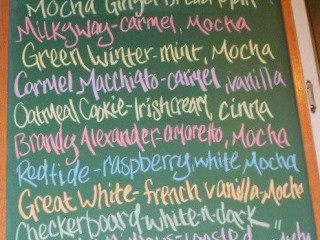 Mocha Gingerbread Man
Milkyway-carmel, Mocha
Green Winter-mint, Mocha
Carmel Macchiato-carmel, vanilla
Oatmeal Cookie-Irishcream, cinna
Brandy Alexander-amaretto, Mocha
Redtide-raspberry, white, Mocha
Great White-french vanilla-Mocha
Checkerboard white-n-dark